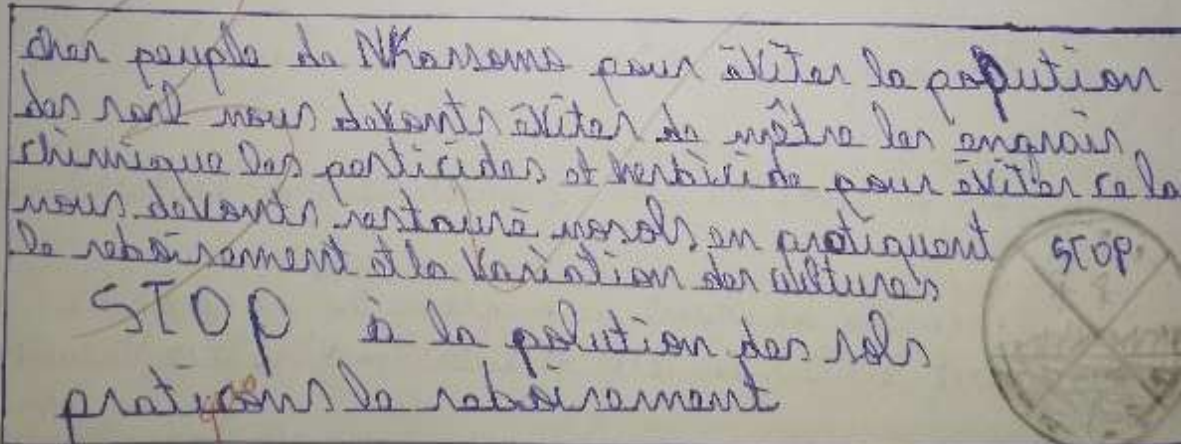 cher peuple de NKassomo pour éviter la popution
des sool nous devonts éviter de mêtre les engrais
chimique les perticides et herbicide pour éviter cela
nous devonts restauré nosols en pratiquent
le reboisement et la variation des cultures
STOP à la polution des sols
pratiqons le reboisement
STOP